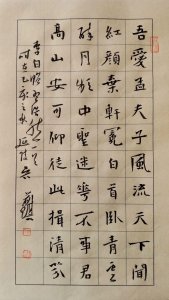 吾愛孟夫子風流天下聞
紅顏棄軒冕白首臥雲
醉月頻中聖迷花不事君
高山安可仰徒此揖清芬
李白贈孟浩然一首
时在之秋